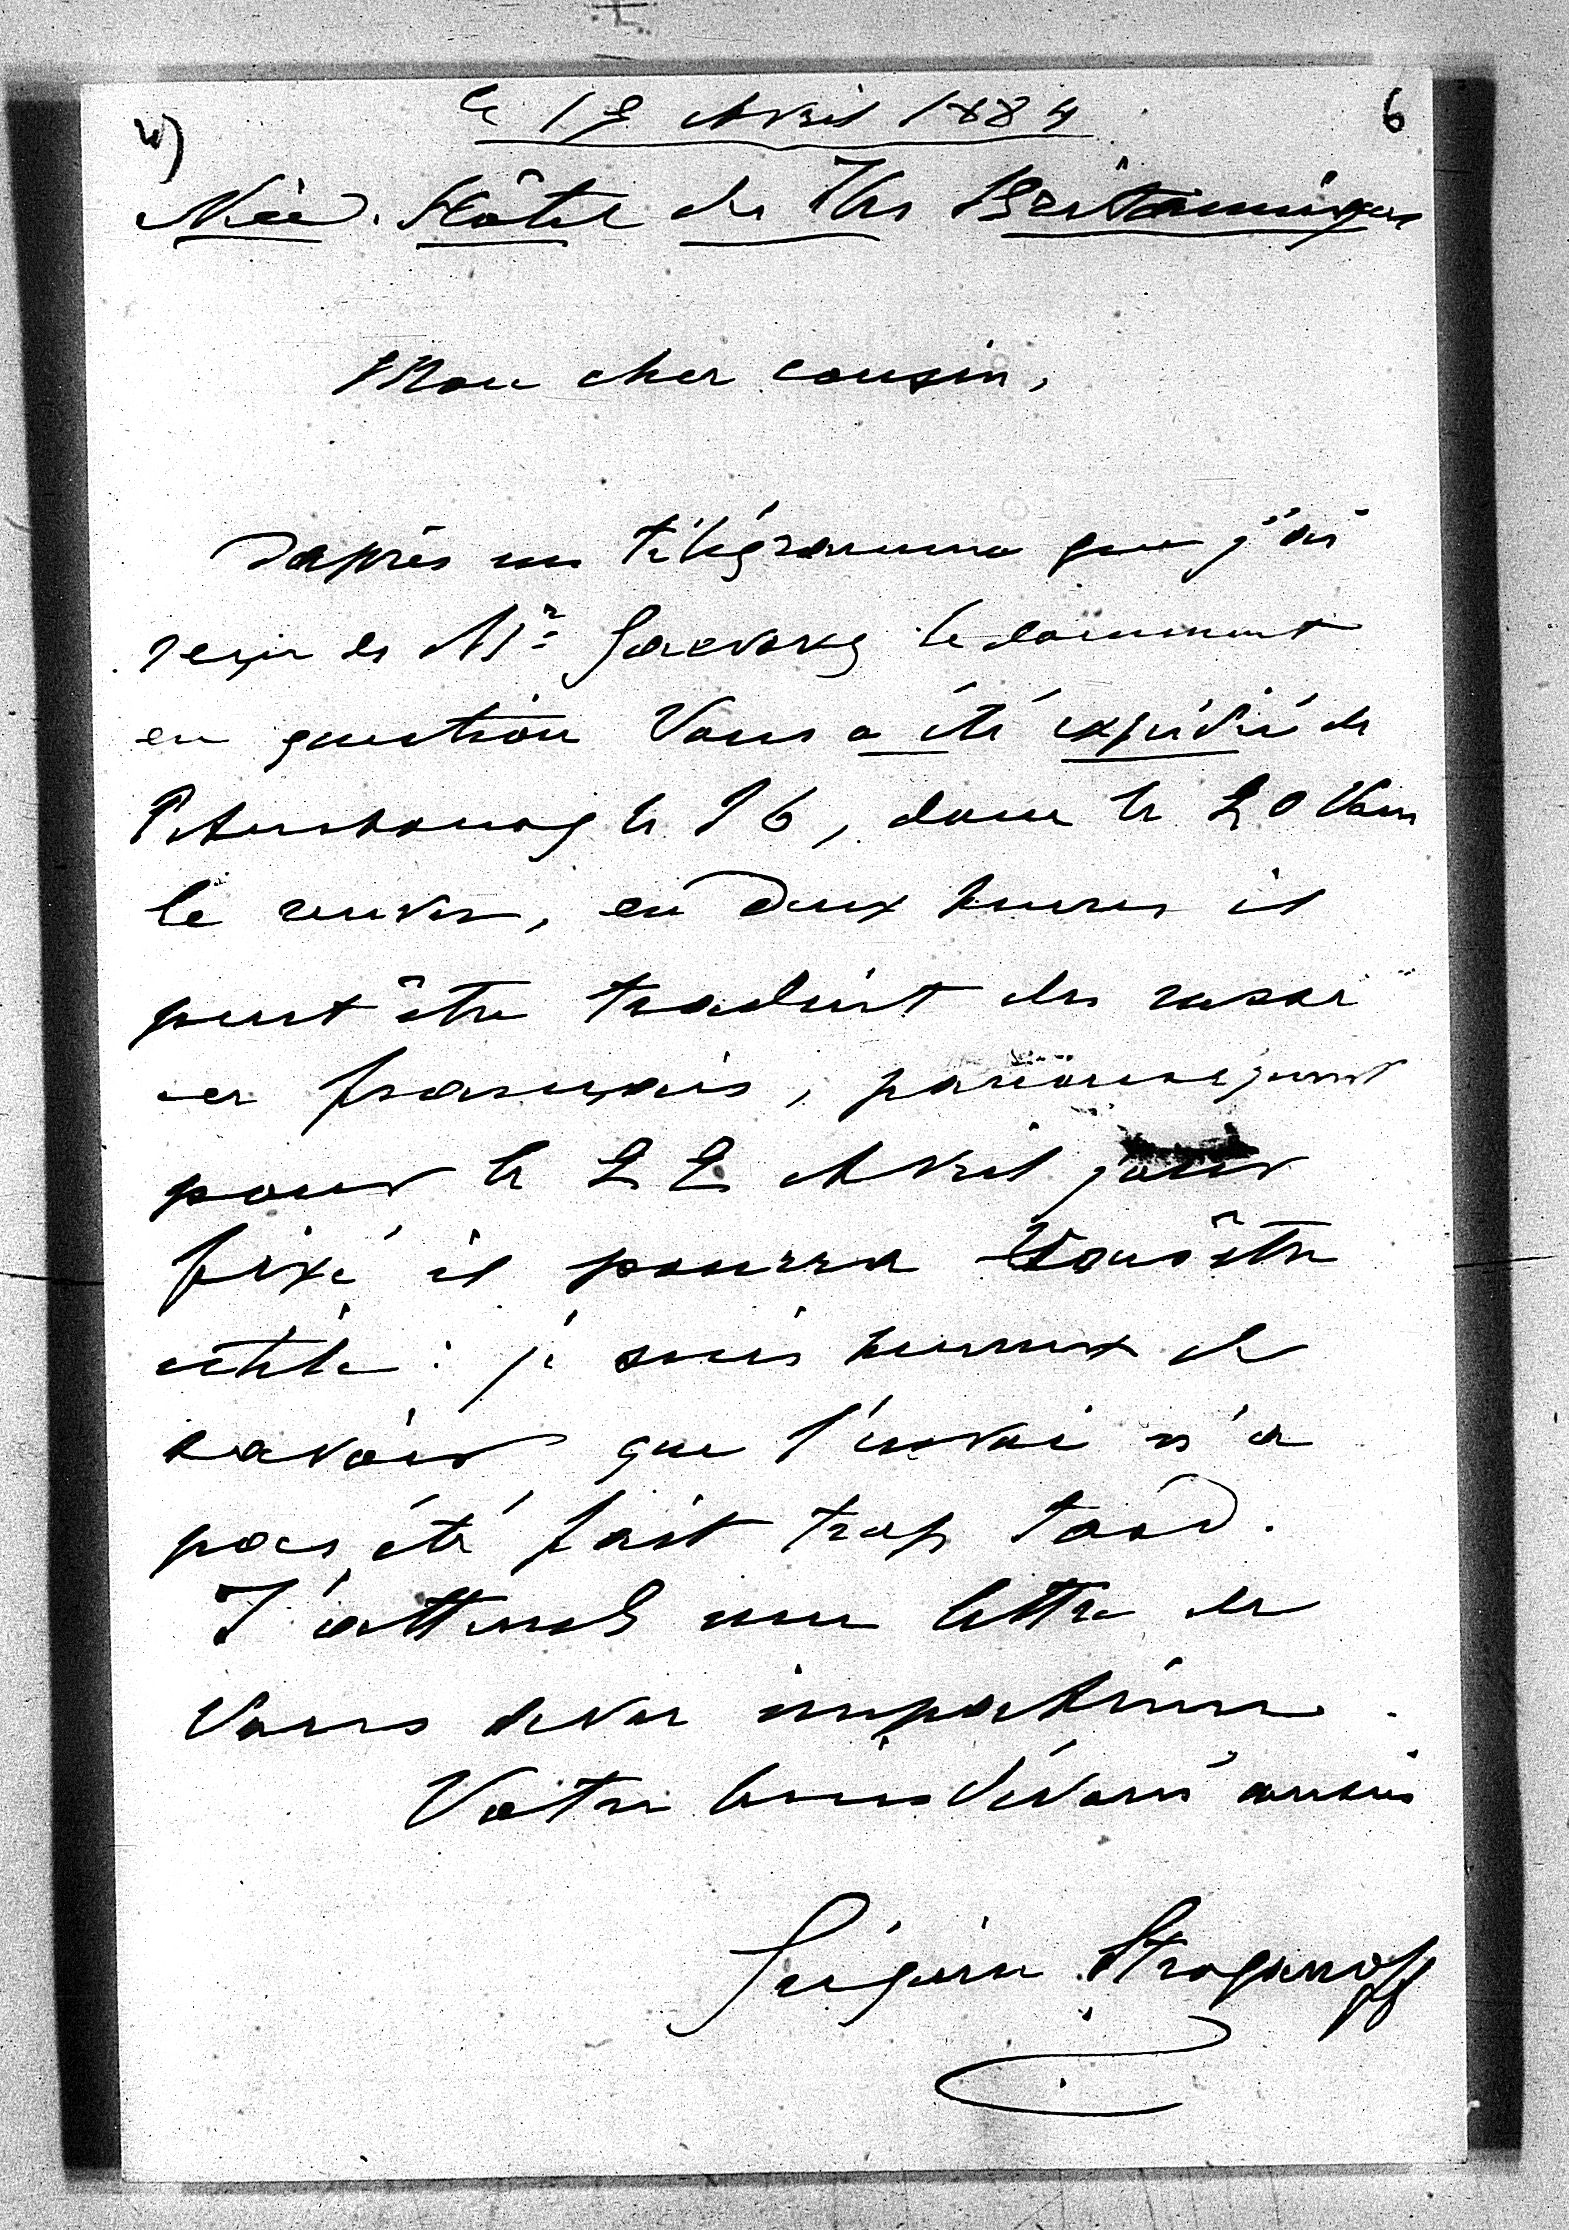 4)
6
le 18 Avril 1884
Nice. Hôtel des Iles Britanniques
Mon cher cousin,
D'après un télégramme que j'ai
reçu de Mr le document
en question Vous a été expédié de
Pétersbourg le 16, donc le 20 Vous
le recevrez, en deux heures il
peut être traduit du russe
en français, par conséquent
pour le 22 Avril jour
fixé il pourra Vous être
utile : je suis heureux de
savoir que l'envoi n'a
pas été fait trop tard.
J'attends une lettre de
Vous avec impatience.
Votre bien dévoué cousin
Grégoire Stroganoff